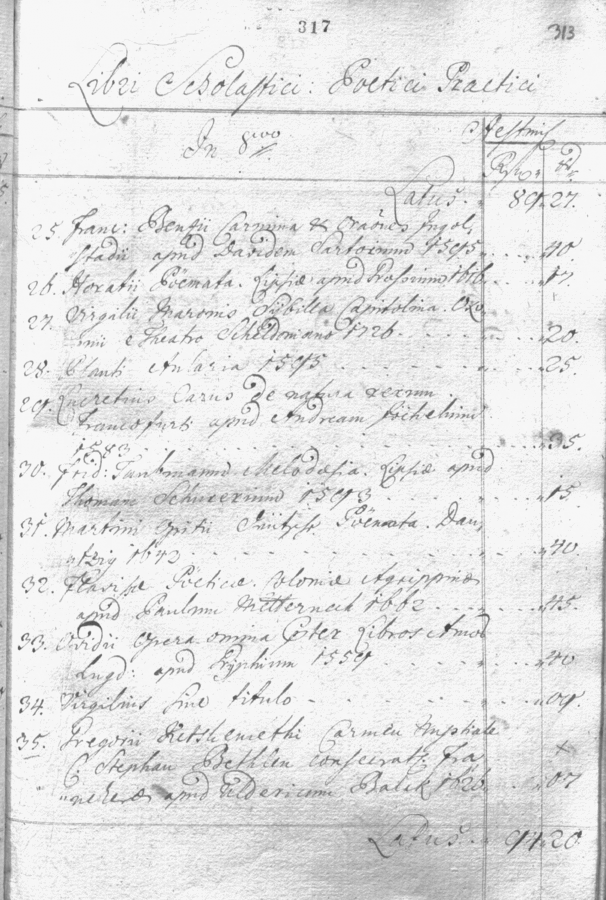 317
313
Libri Scholastici: Poetici Practici
In 8vo
Aestimis
Rfor. d
Latus. 89. 27.
25. Franc: Bencii Carmina & Orãões Ingol,
stadii apud Davidem Sartorium 1595 40
26. Horatii Pöemata. Lipsiæ apud Grossium 1616. 17.
27. Virgilii Maronis Sibilla Capitolina. Oxo,
nii e Theatro Scheldoniano 1726 20.
28. Plauti Aulularia 1595 25.
29. Lucretius Carus De natura rerum.
Francofurti apud Andream
1583 35.
30. Frid: Taubmanni Melodæsia. Lipsiæ apud
Thomam Schurerium 1593 15.
31. Martini Opitii Pöemata. Dan,
tzig 1643 40.
32. Flavissæ Pöeticæ. Coloniæ Agrippinæ
apud Paulum Metternich 1662 45.
33. Ovidii Opera omnia præter Libros Amor
Lugd: apud Gryphium 1559 40
34. Virgilius sine titulo 09.
35. Gregorii Ketskemethi Carmen Nuptiale
C. Stephan Bethlen consecrat: Fra,
nekeræ apud Uldericum Balck 1626. 07
Latus. 94. 20.